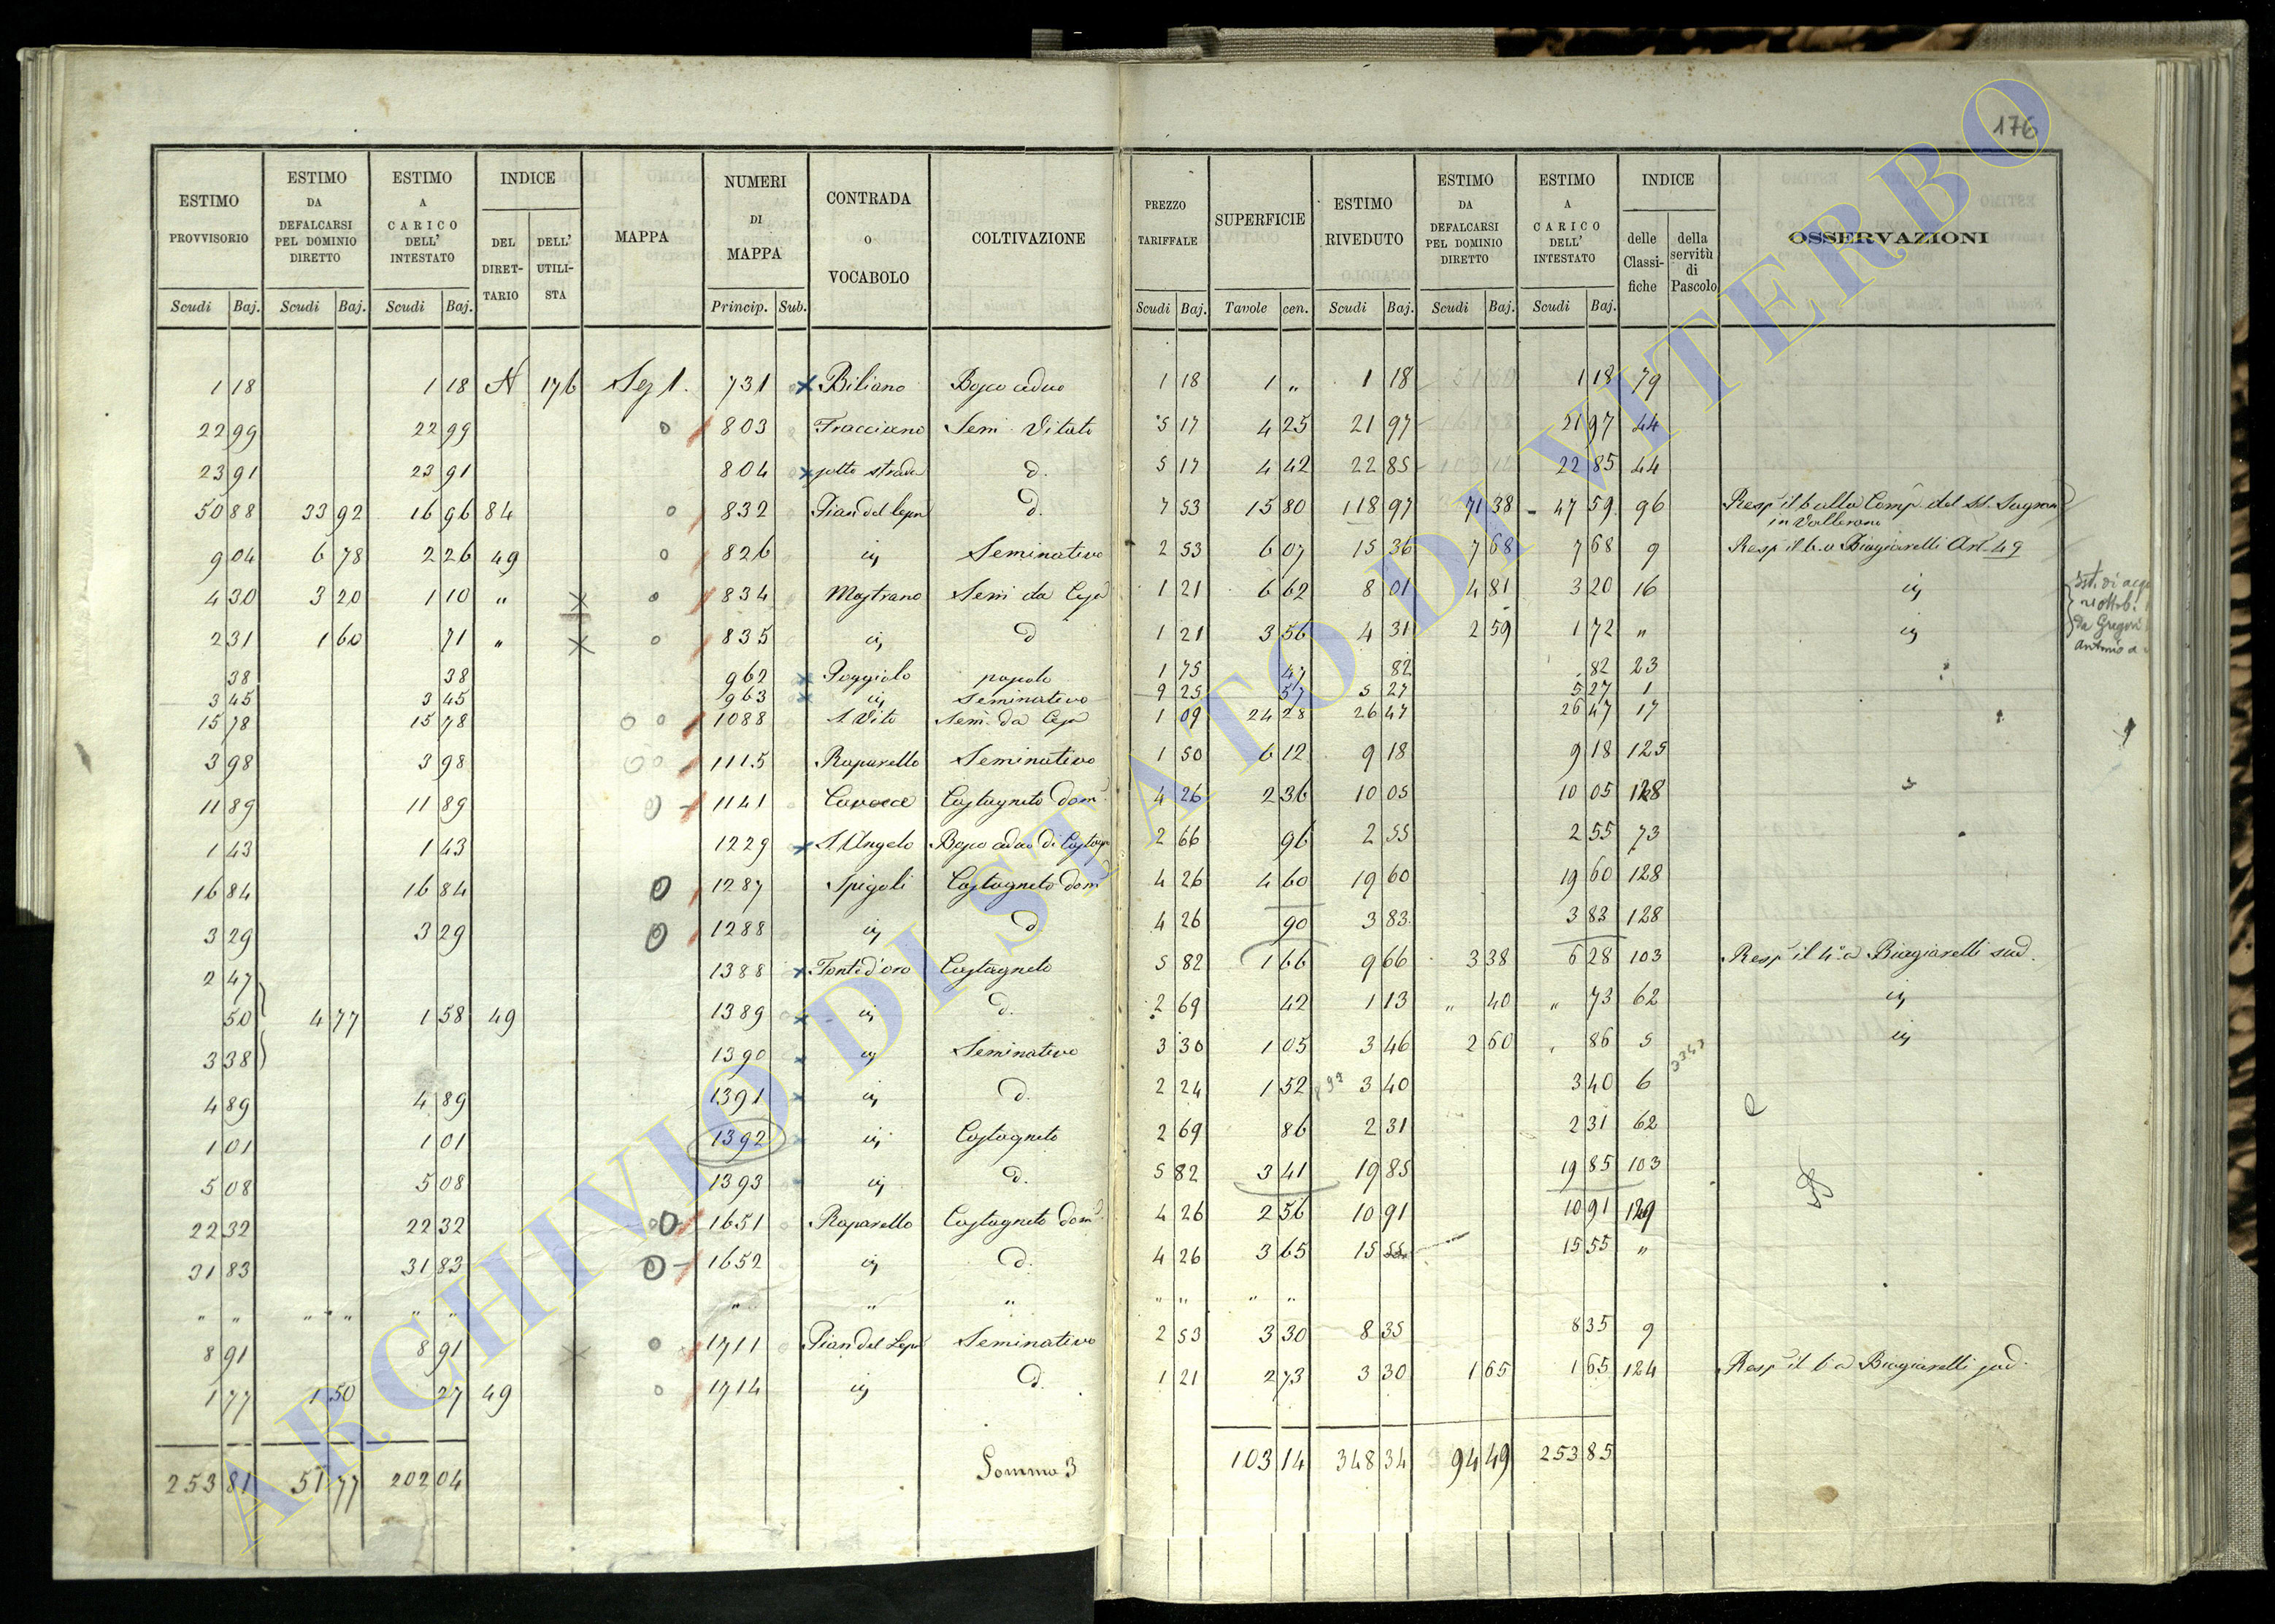 176
ESTIMO PROVVISORIO Scudi Baj.
ESTIMO DA DEFALCARSI PEL DOMINIO DIRETTO Scudi Baj.
ESTIMO A CARICO DELL' INTESTATO Scudi Baj.
INDICE DEL DIRET-TARIO DELL' UTILI-STA
MAPPA
NUMERI DI MAPPA Princip. Sub.
CONTRADA o VOCABOLO
COLTIVAZIONE
PREZZO TARIFFALE Scudi Baj.
SUPERFICIE Tavole cen.
ESTIMO RIVEDUTO Scudi Baj.
ESTIMO DA DEFALCARSI PEL DOMINIO DIRETTO Scudi Baj.
ESTIMO A CARICO DELL' INTESTATO Scudi Baj.
INDICE delle Classi-fiche della servitù di Pascolo
OSSERVAZIONI
1 18 1 18 N 176 Sez 1. 731 Biliano Bosco ceduo 1 18 1 „ 1 18 1 18 79
22 99 22 99 803 Fracciano Sem. Vitato 5 17 4 25 21 97 21 97 44
23 91 23 91 804 sotto strada d. 5 17 4 42 22 85 22 85 44
50 88 33 92 16 96 84 832 Pian del d. 7 53 15 80 118 97 71 38 47 59 96 Resp il 6 alla Comp. del SS. Sagram
in Vallerano
9 04 6 78 2 26 49 826 id. Seminativo 2 53 6 07 15 36 7 68 7 68 9 Resp il 6 a Biagiarelli Art. 49
4 30 3 20 1 10 „ 834 Mastrano Sem da 1 21 6 62 8 01 4 81 3 20 16 id.
2 31 1 60 71 „ 835 id. d 1 21 3 56 4 31 2 59 1 72 „ id.
da Gregori
Antonio a
38 38 962 Poggiolo 1 75 47 82 82 23
3 45 3 45 963 id. Seminativo 9 25 57 5 27 5 27 1
15 78 15 78 1088 S. Vito Sem. da 1 09 24 28 26 47 26 47 17
3 98 3 98 1115 Raparello Seminativo 1 50 6 12 9 18 9 18 125
11 89 11 89 1141 Castagneto dom. 4 26 2 36 10 05 10 05 128
1 43 1 43 1229 S. Angelo Bosco ceduo di Castagn 2 66 96 2 55 2 55 73
16 84 16 84 1287 Spigoli Castagneto dom 4 26 4 60 19 60 19 60 128
3 29 3 29 1288 id. d 4 26 90 3 83 3 83 128
2 47 1388 Fonte d'oro Castagneto 5 82 1 66 9 66 3 38 6 28 103 Resp il 4 a Biagiarelli sud.
50 4 77 1 58 49 1389 id. d. 2 69 42 1 13 „ 40 „ 73 62 id.
3 38 1390 id. Seminativo 3 30 1 05 3 46 2 60 86 5 id.
4 89 4 89 1391 id. d. 2 24 1 52 3 40 3 40 6
1 01 1 01 1392 id. Castagneto 2 69 86 2 31 2 31 62
5 08 5 08 1393 id. d. 5 82 3 41 19 85 19 85 103
22 32 22 32 1651 Raparello Castagneto dom. 4 26 2 56 10 91 10 91 129
31 83 31 83 1652 id. d. 4 26 3 65 15 55 15 55 „
„ „ „ „ „ „ „ „ „ „ „ „ „
8 91 8 91 1711 Pian del Seminativo 2 53 3 30 8 35 8 35 9
1 77 1 50 27 49 1714 id. d. 1 21 2 73 3 30 1 65 1 65 124 Resp il 6 a Biagiarelli sud.
253 81 51 77 202 04 Somma 3 103 14 348 34 94 49 253 85
ARCHIVIO DI STATO DI VITERBO